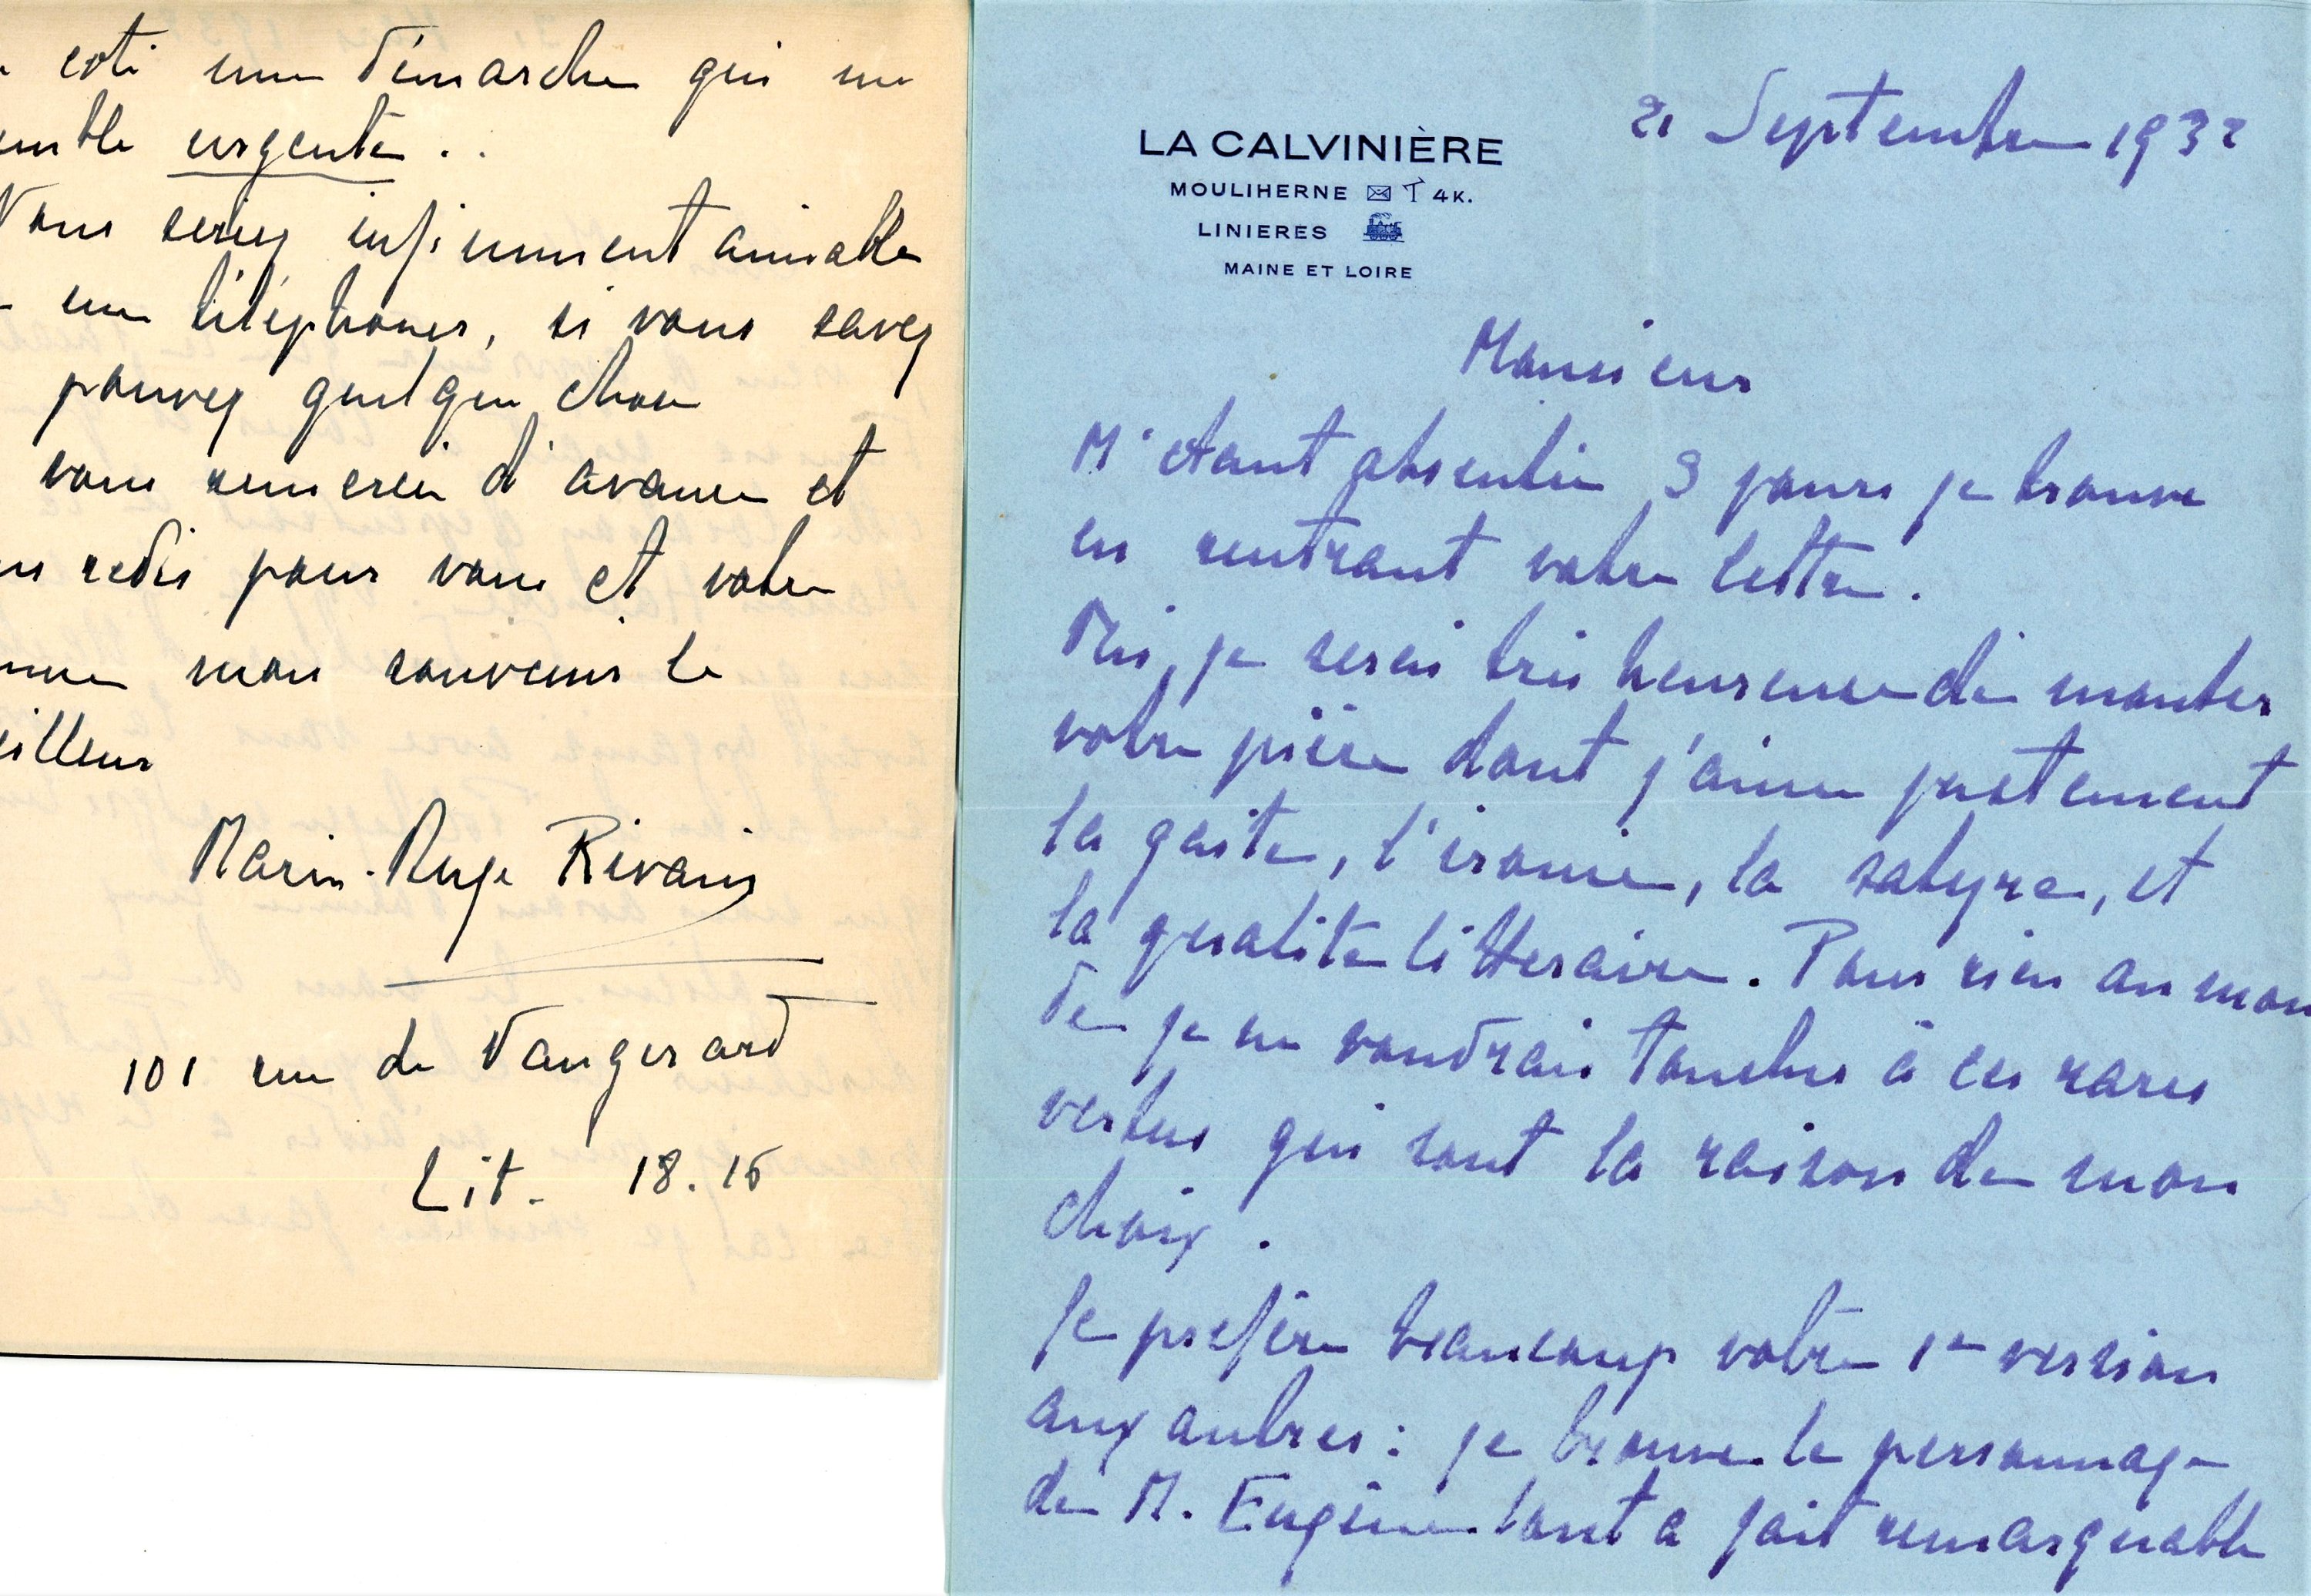 coté une démarche qui me
semble urgente..
Vous seriez infiniment aimable
me téléphoner, si vous savez
pouvez quelque chose
vous remercie d'avance et
redis pour vous et votre
mon souvenir le
eilleur
Marie-Ange Rivain
101 rue de Vaugirard
Lit. 18.15
21 Septembre 1932
LA CALVINIÈRE
MOULIHERNE 4K.
LINIERES
MAINE ET LOIRE
Monsieur
M'étant absentée 3 jours je trouve
en rentrant votre lettre.
Oui, je serai très heureuse de monter
votre pièce dont j'aime justement
la gaité, l'ironie, la satyre, et
la qualité littéraire. Pour rien au mon
de je ne voudrais toucher à ces rares
vertus qui sont la raison de mon
choix.
Je préfère beaucoup votre 1e version
aux autres : je trouve le personnage
de M. Eugène tout à fait remarquable